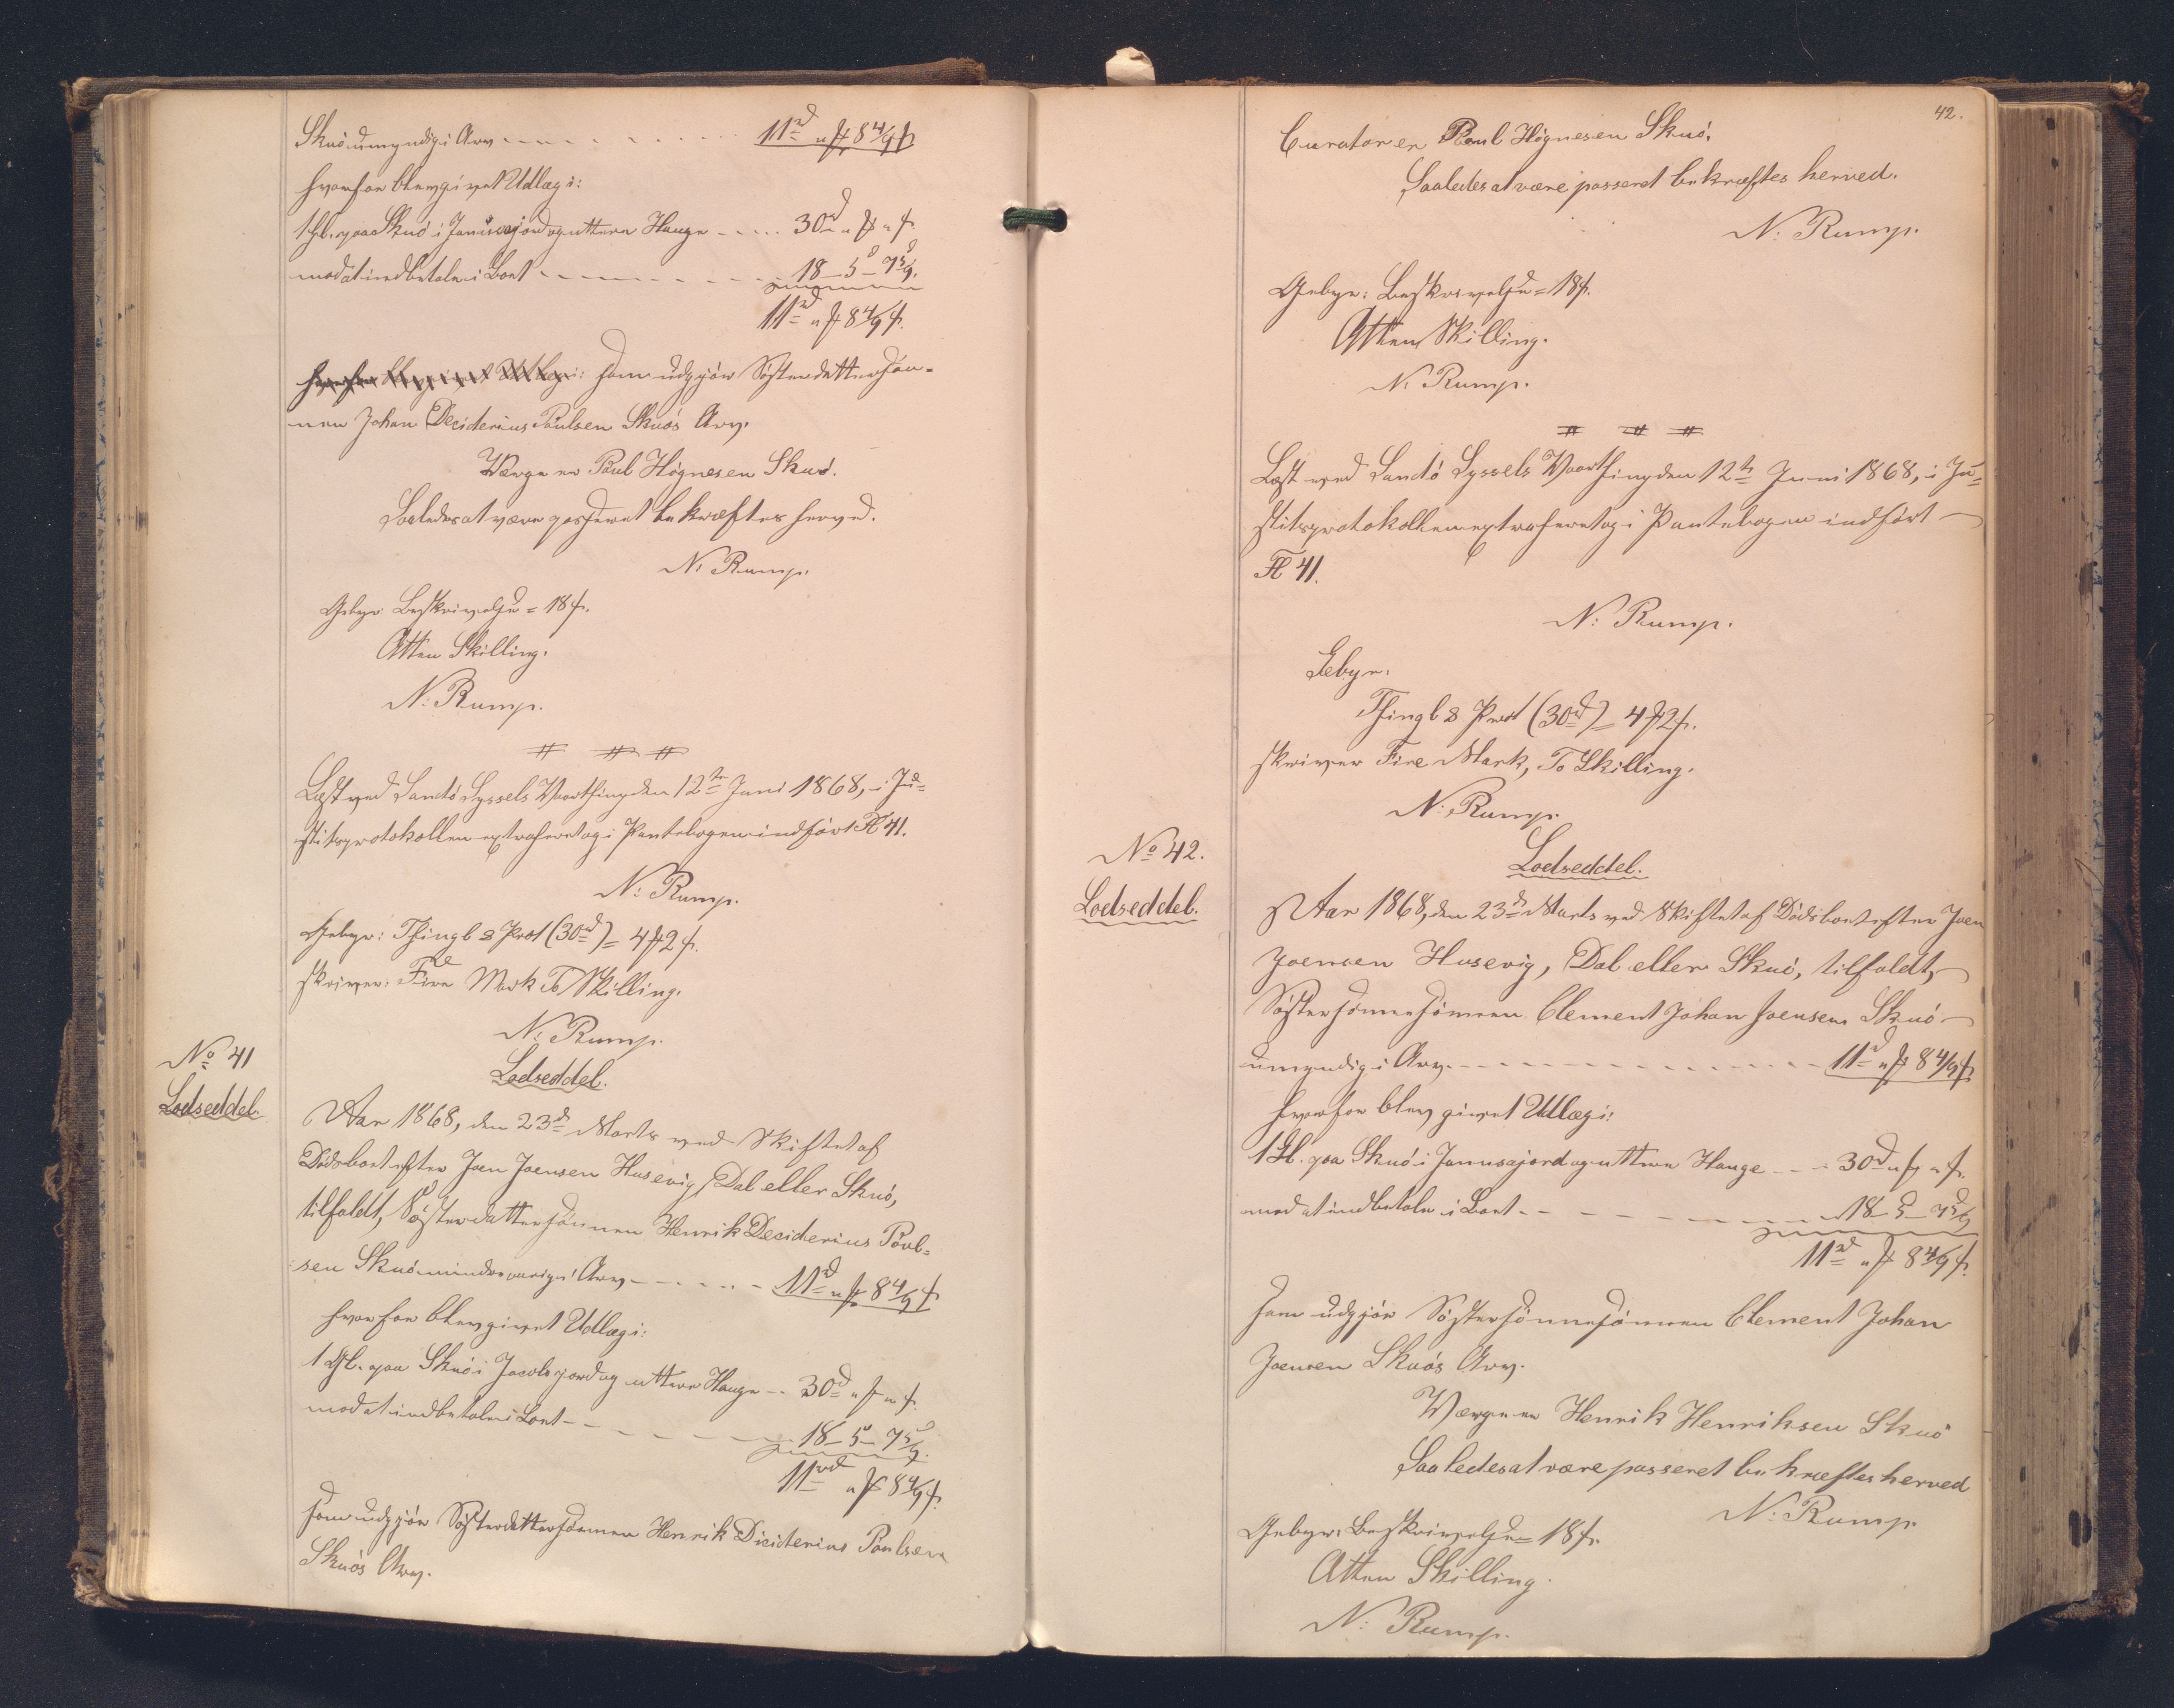 Skuö umyndig i Arv - - - - - - 11rd " ₰ 8 4/9 ß
hvorfor blev givet Udlæg i:
1 Gl. paa Skuö i Janusarjord og uttere Hauge - - - - 30rd " ₰ " ß.
mod at indbetale i Boet - - - - - - 18 - 5 - 7 5/9.
11rd " ₰ 8 4/9 ß.
hvorfor blev givet Udlæg i: som udgjör Sösterdattersön-
nen Johan Deciderius Poulsen Skuös Arv.
Værge er Poul Högnesen Skuö.
Saaledes at være passeret bekræftes herved.
N. Rump.
Gebyr: Beskrivelse = 18 ß.
Atten Skilling.
N. Rump.
Læst ved Sandö Syssels Vaarthing den 12te Juni 1868, i Ju-
stitsprotokollen extraheret og i Pantebogen indfört Fl 41.
N. Rump.
Gebyr: Thingl & Prot (30rd) = 4 ₰ 2 ß.
skriver: Fire Mark To Skilling.
N. Rump.
No 41
Lodseddel.
Lodseddel.
Aar 1868, den 23de Marts ved Skiftet af
Dödsboet efter Joen Joensen Husevig, Dal eller Skuö,
tilfaldt, Sösterdattersönnen Henrik Deciderius Poul-
sen Skuö mindreaarig i Arv - - - - - - 11rd " ₰ 8 4/9 ß
hvorfor blev givet Udlæg i:
1 Gl. paa Skuö i Jacobsjord og uttere Hauge - - 30rd " ₰ " ß.
mod at indbetale i Boet - - - - - - 18 - 5 - 7 5/9.
11rd " ₰ 8 4/9 ß.
som udgjör Sösterdattersönnen Henrik Diciderius Poulsen
Skuös Arv.
42.
Curator er Poul Högnesen Skuö.
Saaledes at være passeret bekræftes herved.
N. Rump.
Gebyr: Beskrivelse = 18 ß.
Atten Skilling.
N. Rump.
Læst ved Sandö Syssels Vaarthing den 12te Juni 1868, i Ju-
stitsprotokollen extraheret og i Pantebogen indfört
Fl 41.
N. Rump.
Gebyr:
Thingl & Prot (30rd) = 4 ₰ 2 ß.
skriver Fire Mark, To Skilling.
N. Rump.
No 42.
Lodseddel.
Lodseddel.
Aar 1868, den 23de Marts ved Skiftet af Dödsboet efter Joen
Joensen Husevig, Dal eller Skuö, tilfaldt,
Söstersönnesönnen Clement Johan Joensen Skuö
umyndig i Arv. - - - - - - 11rd " ₰ 8 4/9 ß
hvorfor blev givet Udlæg i:
1 Gl. paa Skuö i Janusajord og uttere Hauge - - - 30rd " ₰ " ß.
mod at indbetale i Boet - - - - - - 18 - 5 - 7 5/9
11rd " ₰ 8 4/9 ß.
som udgjör Söstersönnesönnen Clement Johan
Joensen Skuös Arv.
Værge er Henrik Henriksen Skuö
Saaledes at være passeret bekræftes herved
N. Rump.
Gebyr: Beskrivelse = 18 ß.
Atten Skilling.
N. Rump.